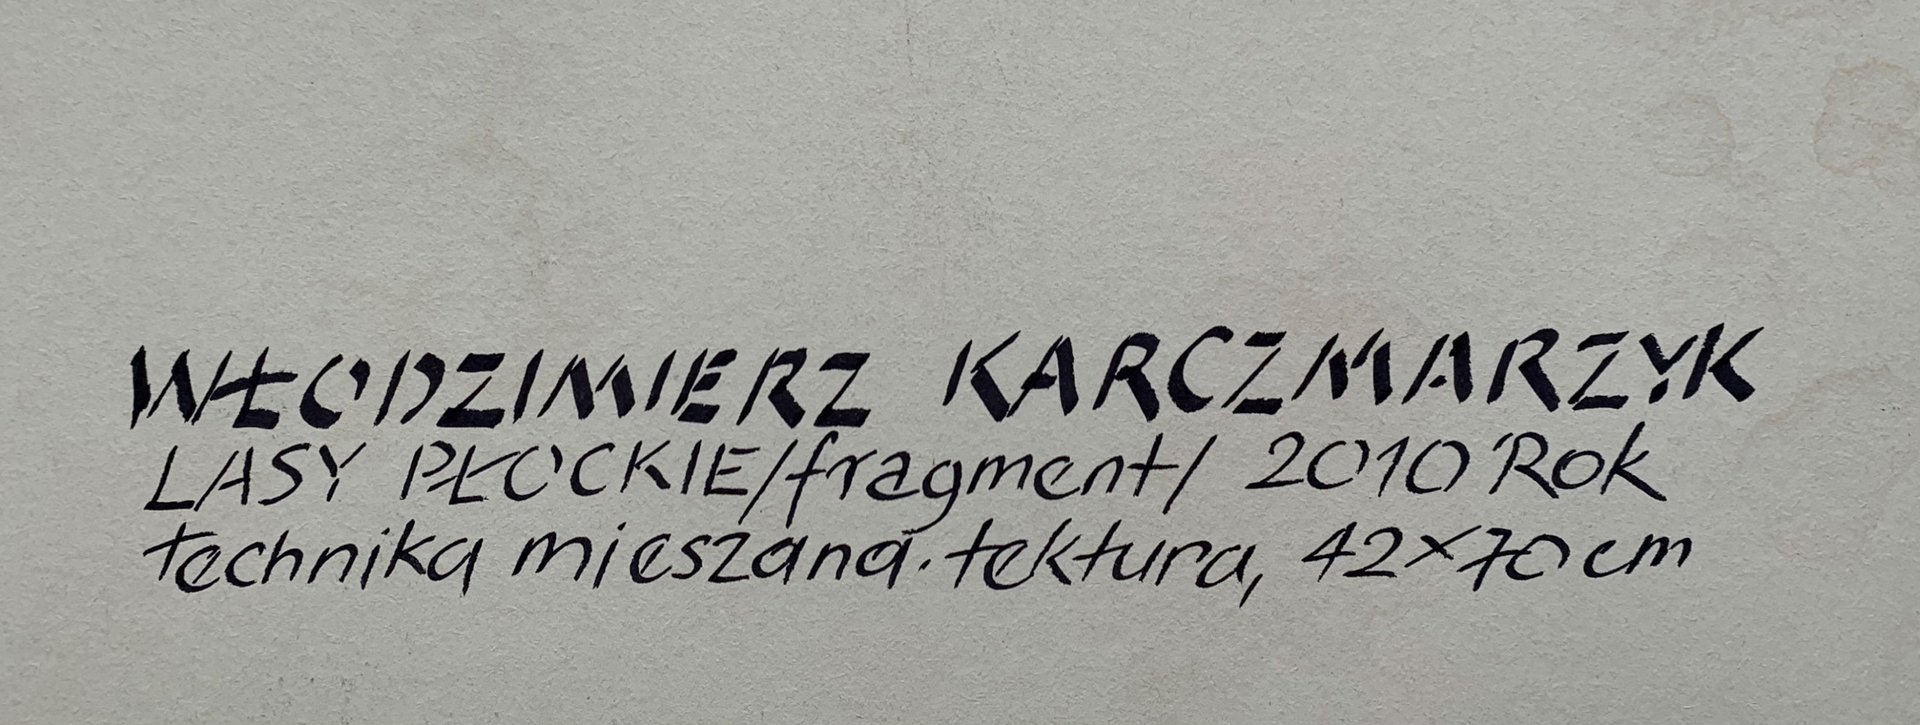 WŁODZIMIERZ KARCZMARZYK
LASY PŁOCKIE/fragment/ 2010 Rok
technika mieszana. tektura, 42×70 cm